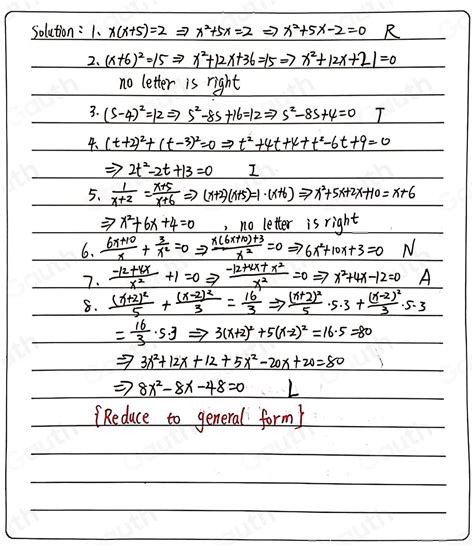 Solution: 1. x(x+5)=2 ⇒ x²+5x=2 ⇒ x²+5x-2=0 R
2. (x+6)²=15 ⇒ x²+12x+36=15 ⇒ x²+12x+21=0
no letter is right
3. (s-4)²=12 ⇒ s²-8s+16=12 ⇒ s²-8s+4=0 T
4. (t+2)²+(t-3)²=0 ⇒ t²+4t+4+t²-6t+9=0
⇒ 2t²-2t+13=0 I
5. 1/(x+2) = (x+5)/(x+6) ⇒ (x+2)(x+5)=1·(x+6) ⇒ x²+5x+2x+10=x+6
⇒ x²+6x+4=0 , no letter is right
6. (6x+10)/x + 3/x² = 0 ⇒ (x(6x+10)+3)/x² = 0 ⇒ 6x²+10x+3=0 N
7. (-12+4x)/x² + 1 = 0 ⇒ (-12+4x+x²)/x² = 0 ⇒ x²+4x-12=0 A
8. (x+2)²/5 + (x-2)²/3 = 16/3 ⇒ (x+2)²/5 ·5·3 + (x-2)²/3 ·5·3
= 16/3 ·5·3 ⇒ 3(x+2)²+5(x-2)²=16·5=80
⇒ 3x²+12x+12+5x²-20x+20=80
⇒ 8x²-8x-48=0 L
{Reduce to general form}
Gauth